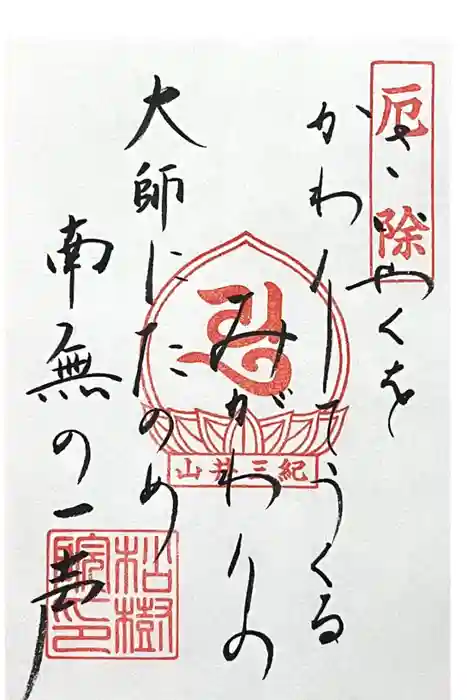 厄除
やくを
かわりてうくる
みがわりの
大師にたのめ
南無の一声
紀三井山
松樹
院印